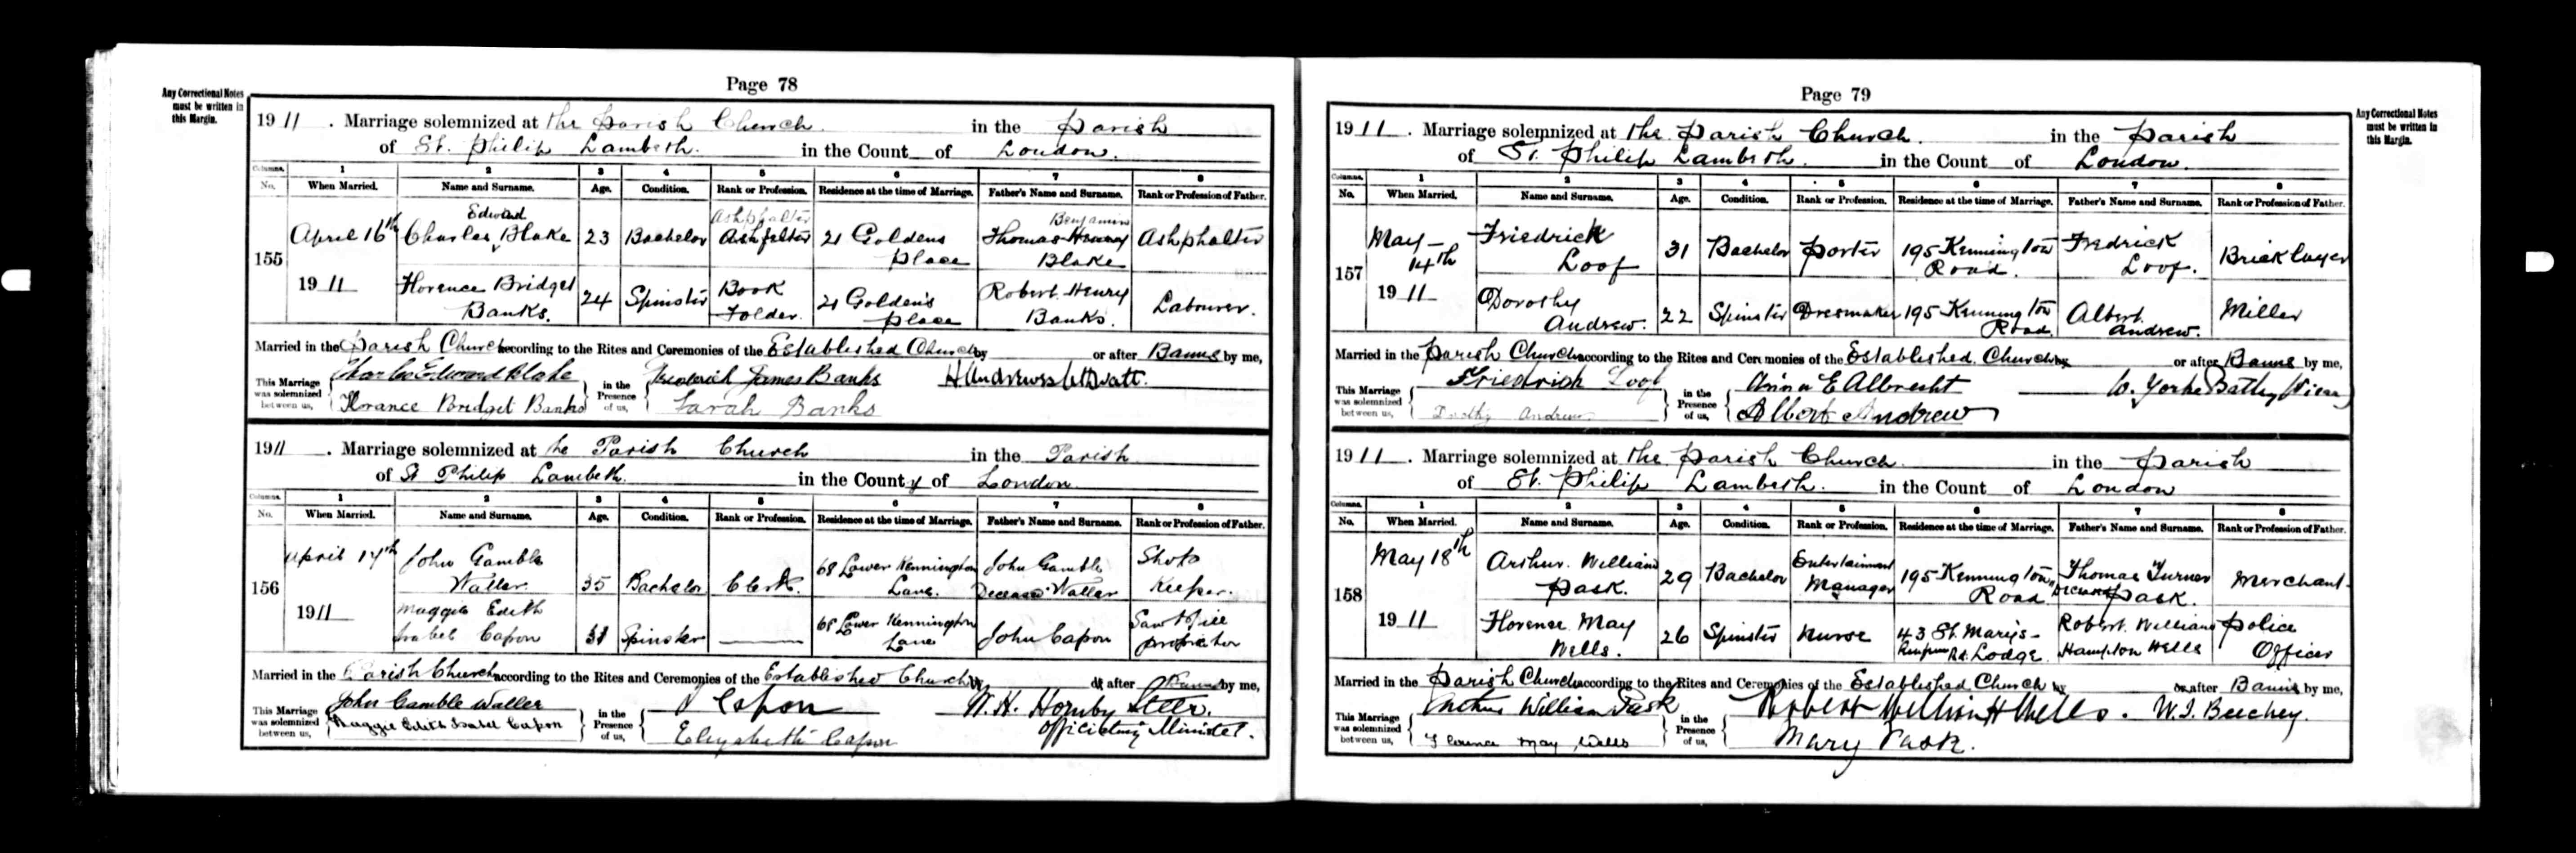 Page 78
Any Correctional Notes
must be written in
this Margin.
1911. Marriage solemnized at the Parish Church in the Parish
of St. Philip Lambeth. in the Count of London.
Columns. 1 2 3 4 5 6 7 8
No. When Married. Name and Surname. Age. Condition. Rank or Profession. Residence at the time of Marriage. Father's Name and Surname. Rank or Profession of Father.
155
April 16th 1911
Charles Edward Blake 23 Bachelor Ashphalter Ashfalter 21 Goldens Place Thomas Henry Benjamin Blake Ashphalter
Florence Bridget Banks. 24 Spinster Book Folder. 21 Golden's Place Robert Henry Banks. Labourer.
Married in the Parish Church according to the Rites and Ceremonies of the Established Church by or after Banns by me,
This Marriage was solemnized between us, Charles Edward Blake
Florance Bridget Banks
in the Presence of us, Frederick James Banks
Sarah Banks
1911. Marriage solemnized at the Parish Church in the Parish
of St Philip Lambeth. in the County of London
Columns. 1 2 3 4 5 6 7 8
No. When Married. Name and Surname. Age. Condition. Rank or Profession. Residence at the time of Marriage. Father's Name and Surname. Rank or Profession of Father.
156
April 17th 1911
John Gamble Waller. 35 Bachelor Clerk. 68 Lower Kennington Lane. John Gamble Waller Deceased Shop Keeper.
Maggie Edith Isabel Capon Spinster 68 Lower Kennington Lane John Capon Proprietor
Married in the Parish Church according to the Rites and Ceremonies of the Established Church by or after Banns by me,
This Marriage was solemnized between us, John Gamble Waller
Maggie Edith Isabel Capon
in the Presence of us, J Capon
Elizabeth Capon
W. H. Hornby Steer.
Officiating Minister.
Page 79
Any Correctional Notes
must be written in
this Margin.
1911. Marriage solemnized at the Parish Church. in the Parish
of St. Philip Lambeth. in the Count of London.
Columns. 1 2 3 4 5 6 7 8
No. When Married. Name and Surname. Age. Condition. Rank or Profession. Residence at the time of Marriage. Father's Name and Surname. Rank or Profession of Father.
157
May 14th 1911
Friedrick Loof 31 Bachelor Porter 195 Kennington Road. Fredrick Loof. Bricklayer
Dorothy Andrew. 22 Spinster Dresmaker 195 Kennington Road Albert Andrew. Miller
Married in the Parish Church according to the Rites and Ceremonies of the Established Church by or after Banns by me,
This Marriage was solemnized between us, Friedrick Loof
Dorothy Andrew
in the Presence of us, Anna E Albrecht
Albert Andrew
W. Yorke Batley Vicar
1911. Marriage solemnized at the Parish Church. in the Parish
of St. Philip Lambeth. in the Count of London
Columns. 1 2 3 4 5 6 7 8
No. When Married. Name and Surname. Age. Condition. Rank or Profession. Residence at the time of Marriage. Father's Name and Surname. Rank or Profession of Father.
158
May 18th 1911
Arthur William Pask. 29 Bachelor Entertainment Manager 195 Kennington Road Thomas Turner Pask. Deceased Merchant
Florence May Wells. 26 Spinster Nurse 43 St. Mary's Rd. Lodge. Robert William Hampton Wells Police Officer
Married in the Parish Church according to the Rites and Ceremonies of the Established Church by or after Banns by me,
This Marriage was solemnized between us, Arthur William Pask
Florence May Wells
in the Presence of us, Robert William H Wells.
Mary Pask.
W. J. Beechey.